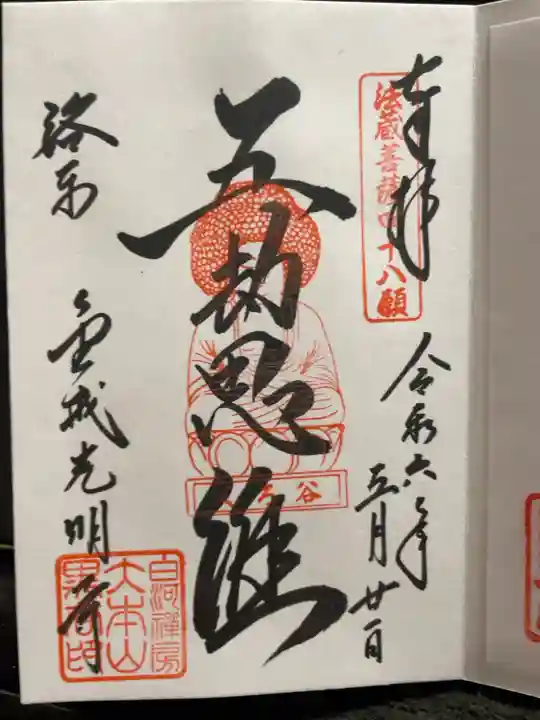 奉拝
法蔵菩薩四十八願
令和六年
五月廿一日
五劫思惟
くろ谷
洛东
金戒光明寺
白河禅房
大本山